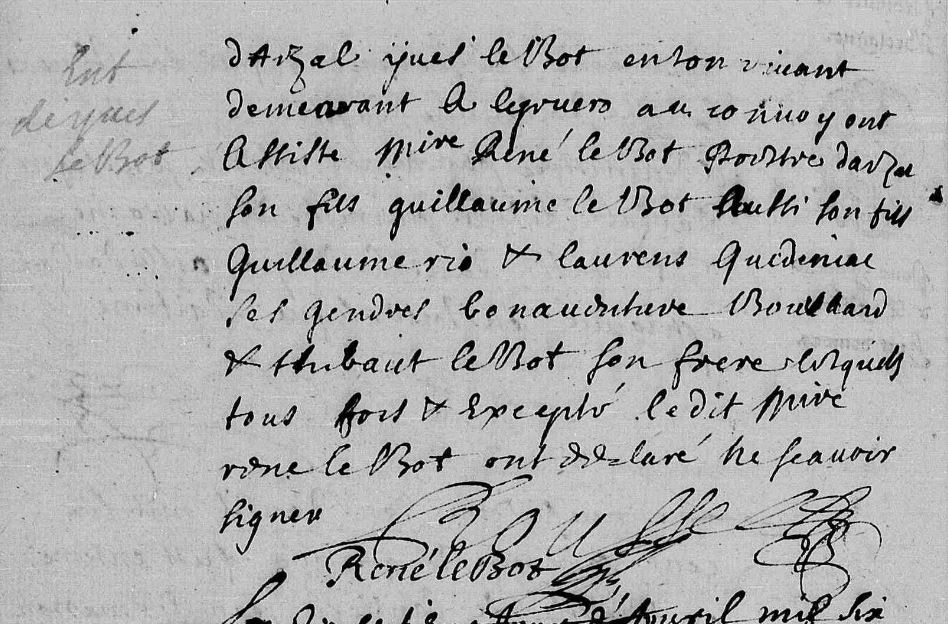 Ent
de yues
le Bot
d'Arzal yues le Bot en son vivant
demeurant a au convoy ont
Assisté Mire René le Bot pbre d'arzal
son fils guillaume le Bot Aussi son fils
Guillaume rio & laurens Guideniac
ses gendres bonauenture Boussard
& thibaut le Bot son frere lesquels
tous fors & Excepté le dit Mire
rene le Bot ont declaré ne scauoir
signer
René le Bot
jour d'Auril mil six